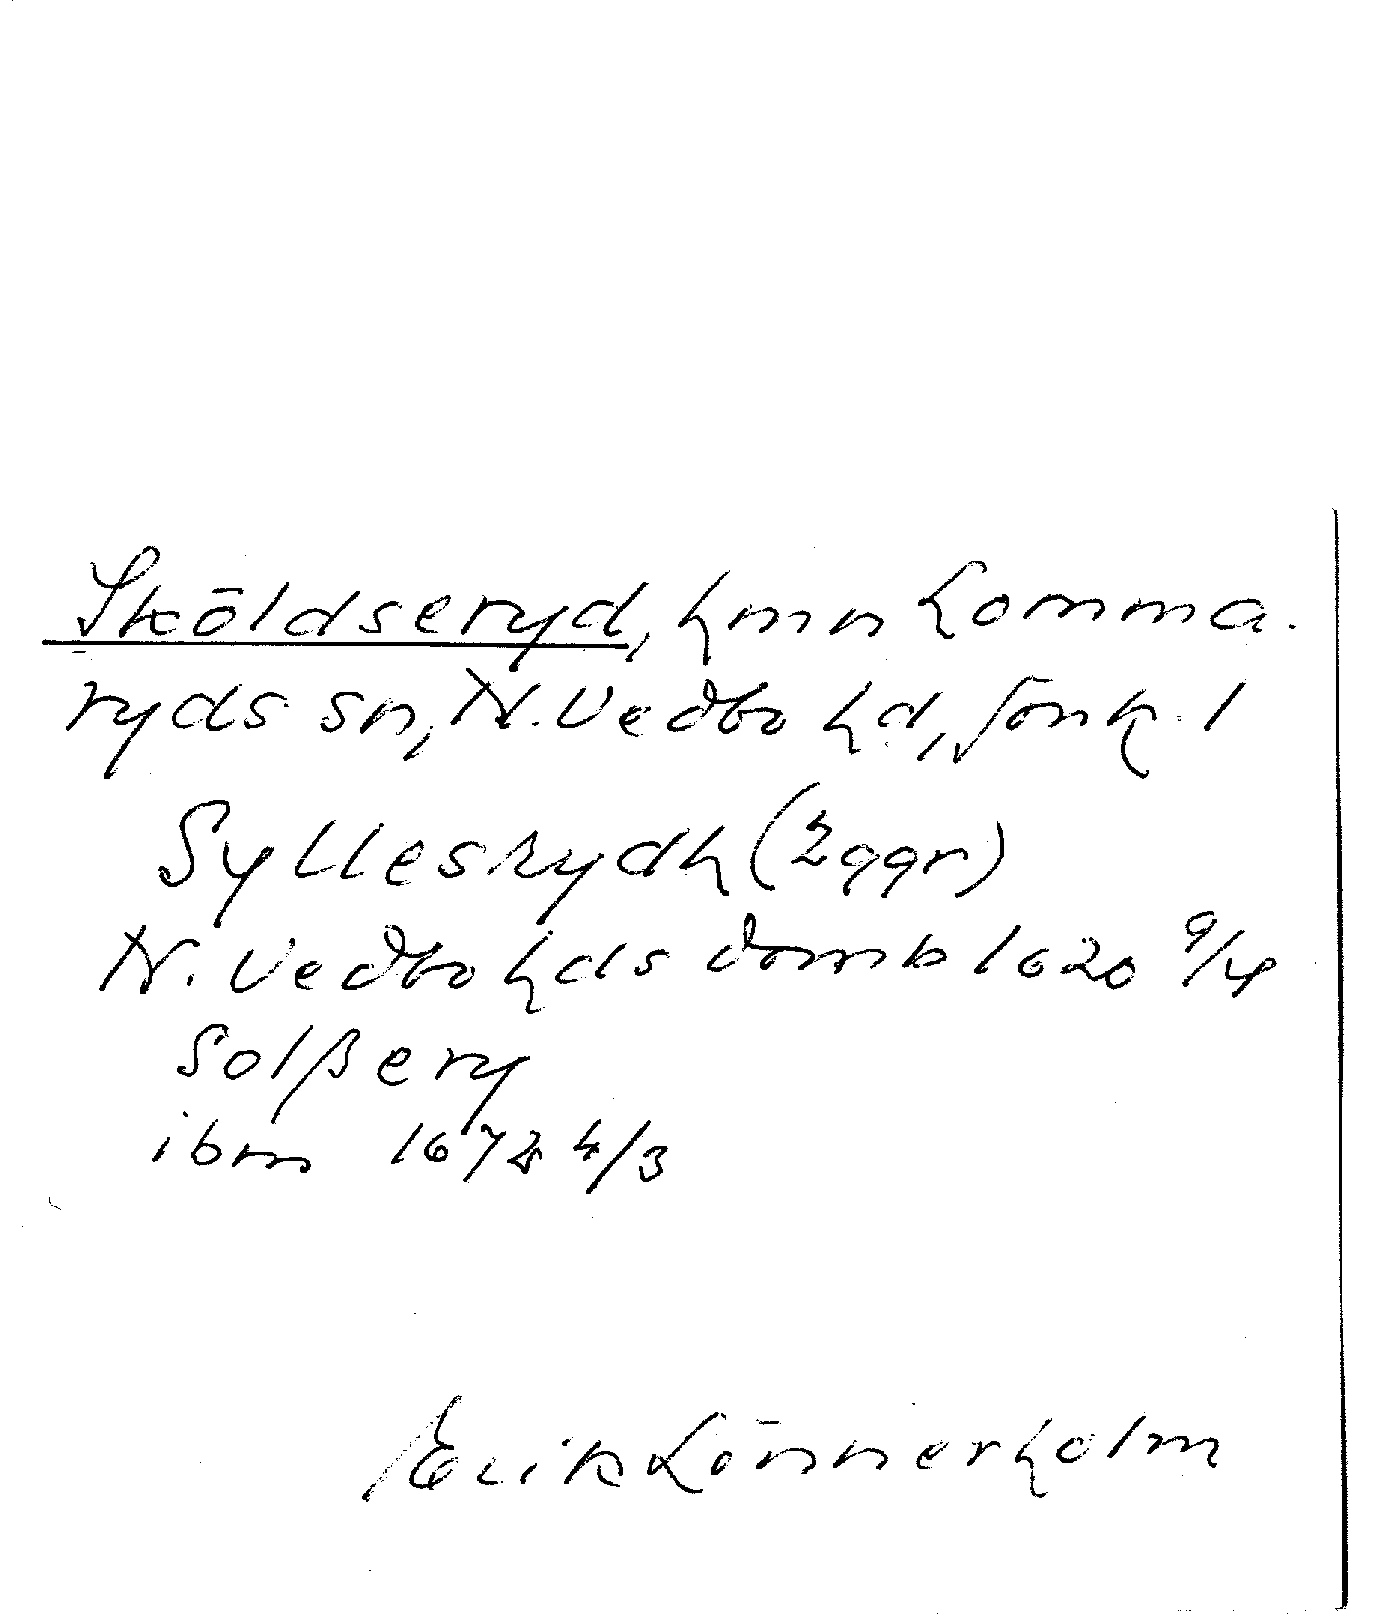 Sköldseryd, hmn Lomma-
ryds sn, N. Vedbo hd, Jönk. l
Sylleskydh (2 ggr)
N. Vedbo hds domb 1620 9/4
Solßery
ibm 1674 4/3
Erik Lönnerholm